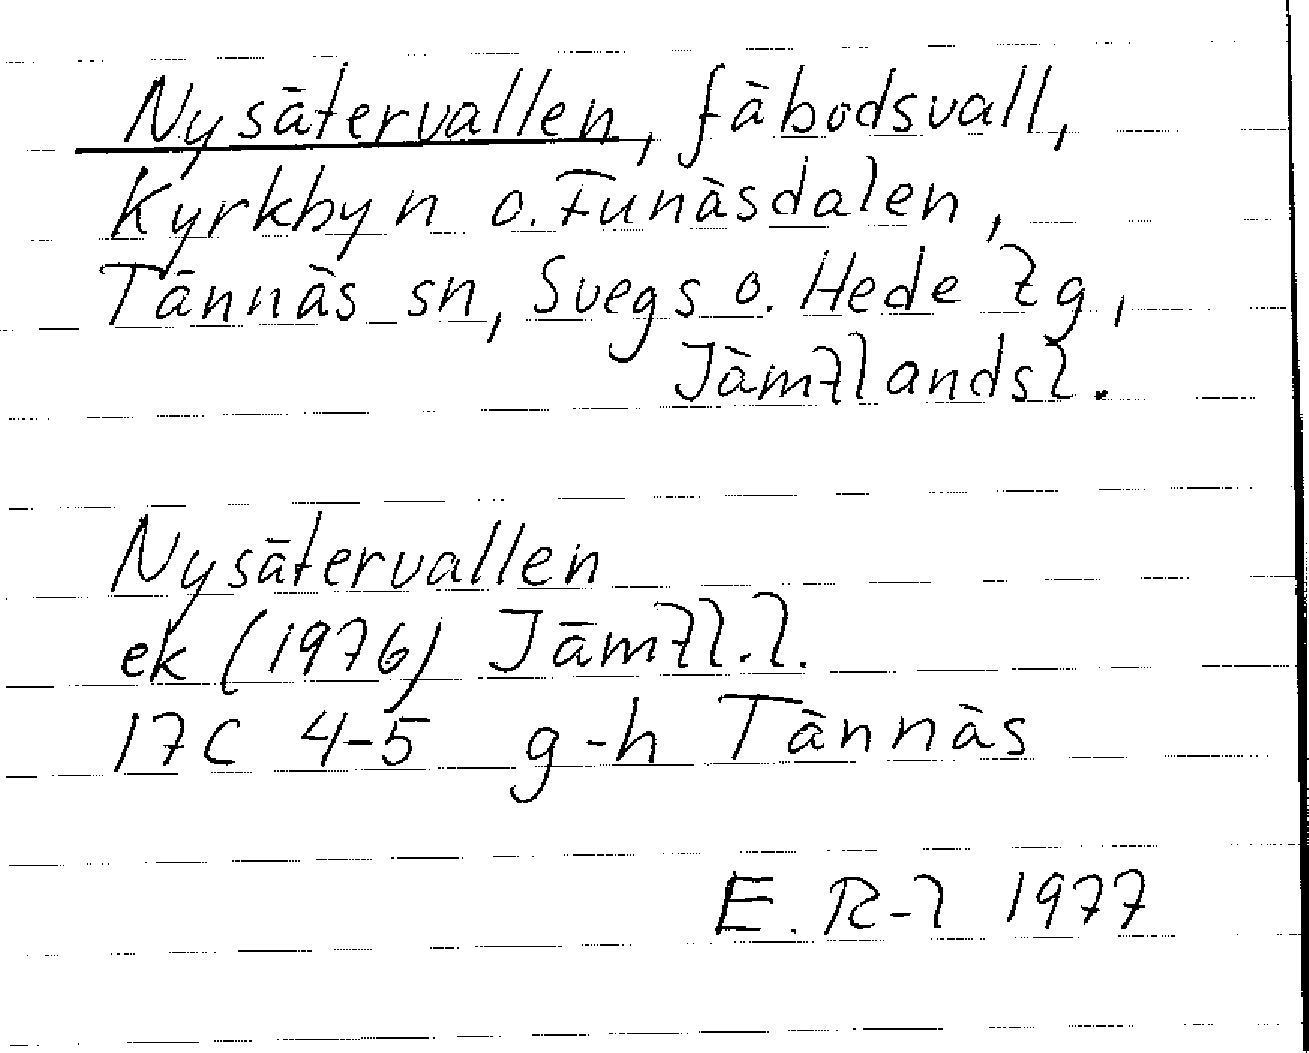 Nysätervallen, fäbodsvall,
Kyrkbyn o. Funäsdalen,
Tännäs sn, Svegs o. Hede tg,
Jämtlandsl.
Nysätervallen
ek (1976) Jämtl.l.
17C 4-5 g-h Tännäs
E. R-l 1977